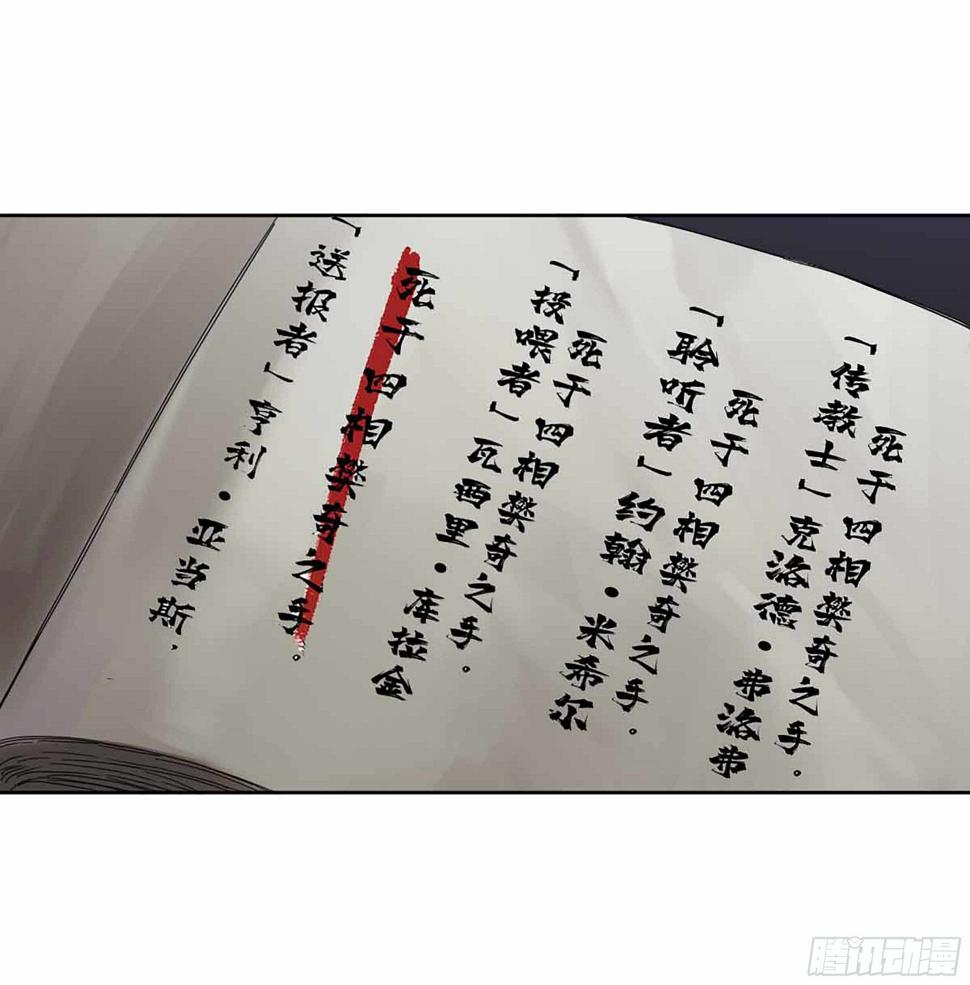 「送报者」亨利·亚当斯,
死于四相樊奇之手。
「投喂者」瓦西里·库拉金
死于四相樊奇之手。
「聆听者」约翰·米希尔
死于四相樊奇之手。
「传教士」克洛德·弗洛弗
死于四相樊奇之手。
腾讯动漫